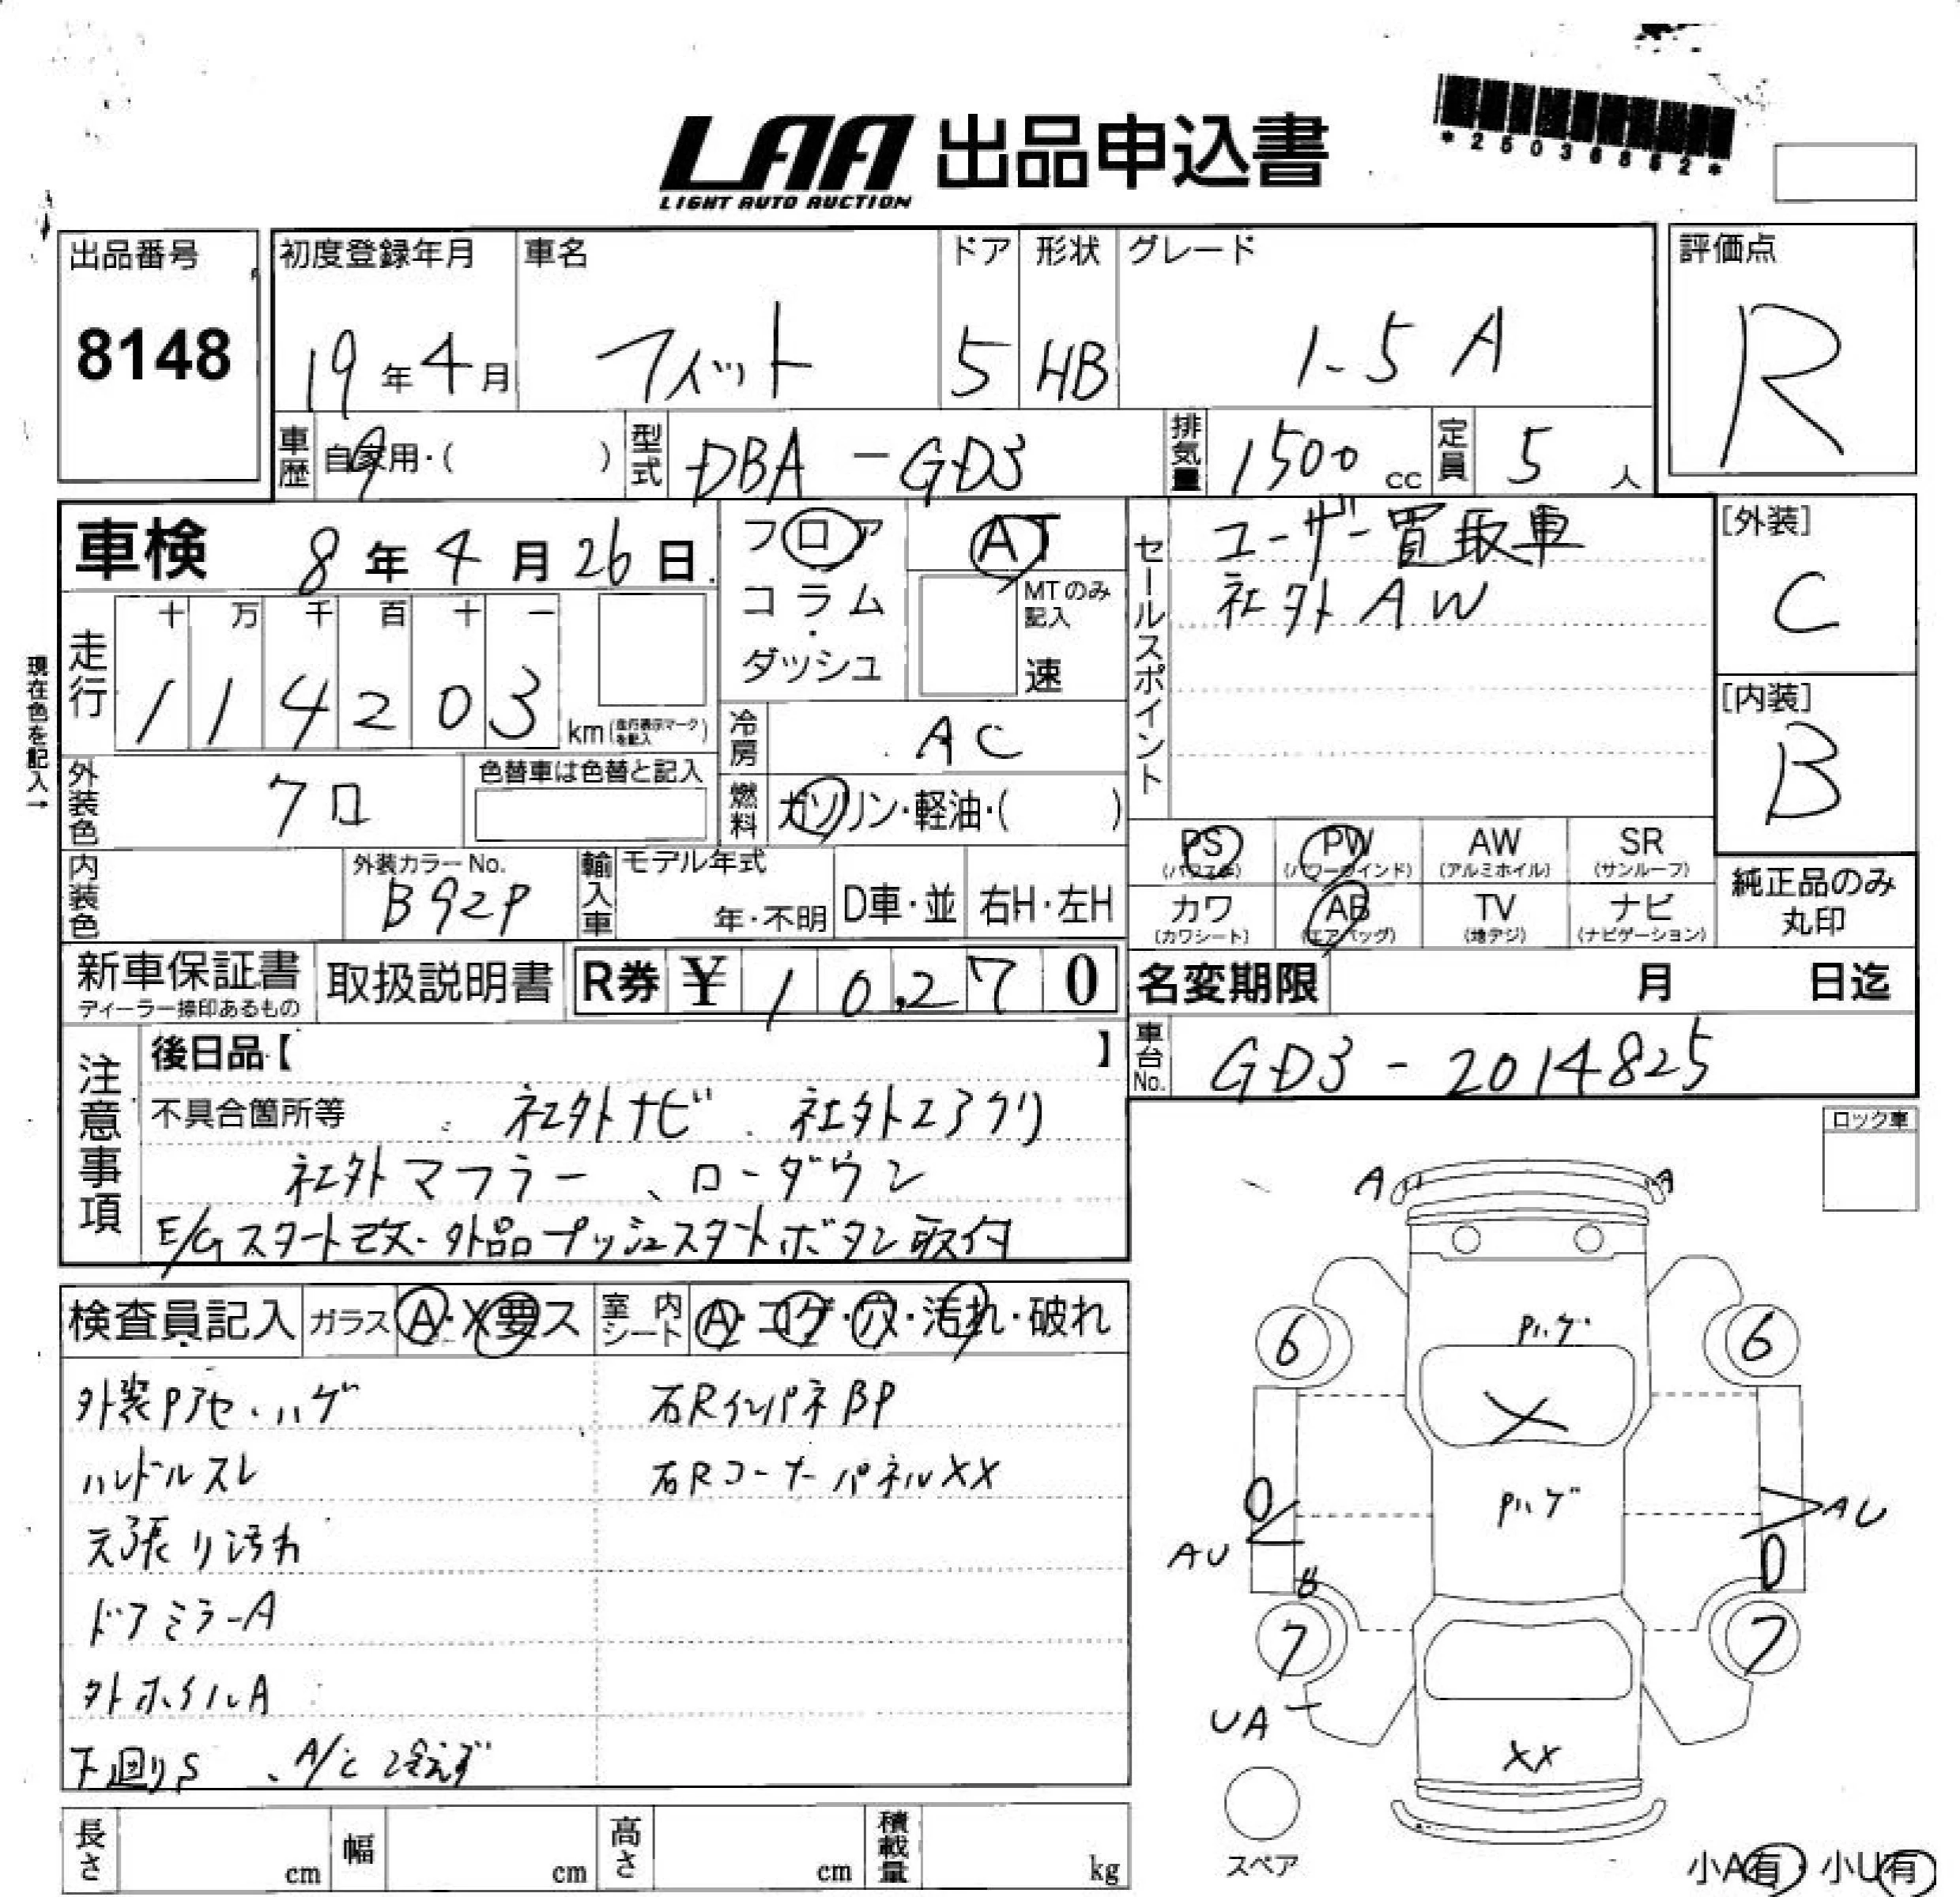 LAA 出品申込書
LIGHT AUTO AUCTION
出品番号
8148
初度登録年月 車名 ドア 形状 グレード
19年4月 フィット 5 HB 1.5 A
評価点
R
車歴 自家用・( ) 型式 DBA-GD3 排気量 1500cc 定員 5人
車検 8年4月26日
フロア コラム・ダッシュ
AT
MTのみ記入
速
セールスポイント
ユーザー買取車
社外AW
[外装]
C
[内装]
B
現在色を記入→
走行 十 万 千 百 十 一
1 1 4 2 0 3 km (走行表示マークを記入)
冷房 AC
外装色 クロ 色替車は色替と記入
燃料 ガソリン・軽油・( )
PS (パワステ) PW (パワーウインド) AW (アルミホイル) SR (サンルーフ)
カワ (カワシート) AB (エアバッグ) TV (地デジ) ナビ (ナビゲーション)
純正品のみ丸印
内装色 外装カラーNo. B92P 輸入車 モデル年式 年・不明 D車・並 右H・左H
新車保証書 ディーラー捺印あるもの 取扱説明書 R券 ¥ 10,270
名変期限 月 日迄
車台No. GD3-2014825
注意事項
後日品【 】
不具合箇所等 社外ナビ 社外エアクリ
社外マフラー、ローダウン
E/Gスタート改・外品プッシュスタートボタン取付
ロック車
検査員記入 ガラス A・X要ス 室内シート A・コゲ・穴・汚れ・破れ
外装Pアセ・ハゲ 右RインパネBP
ハンドルスレ 右RコーナーパネルXX
天張り汚れ
ドアミラーA
外ホイルA
下廻りS、A/C冷えず
A A
Pハゲ
6 6
X
Pハゲ
AU AU
7 7
UA
XX
スペア
小A有・小U有
長さ cm 幅 cm 高さ cm 積載量 kg